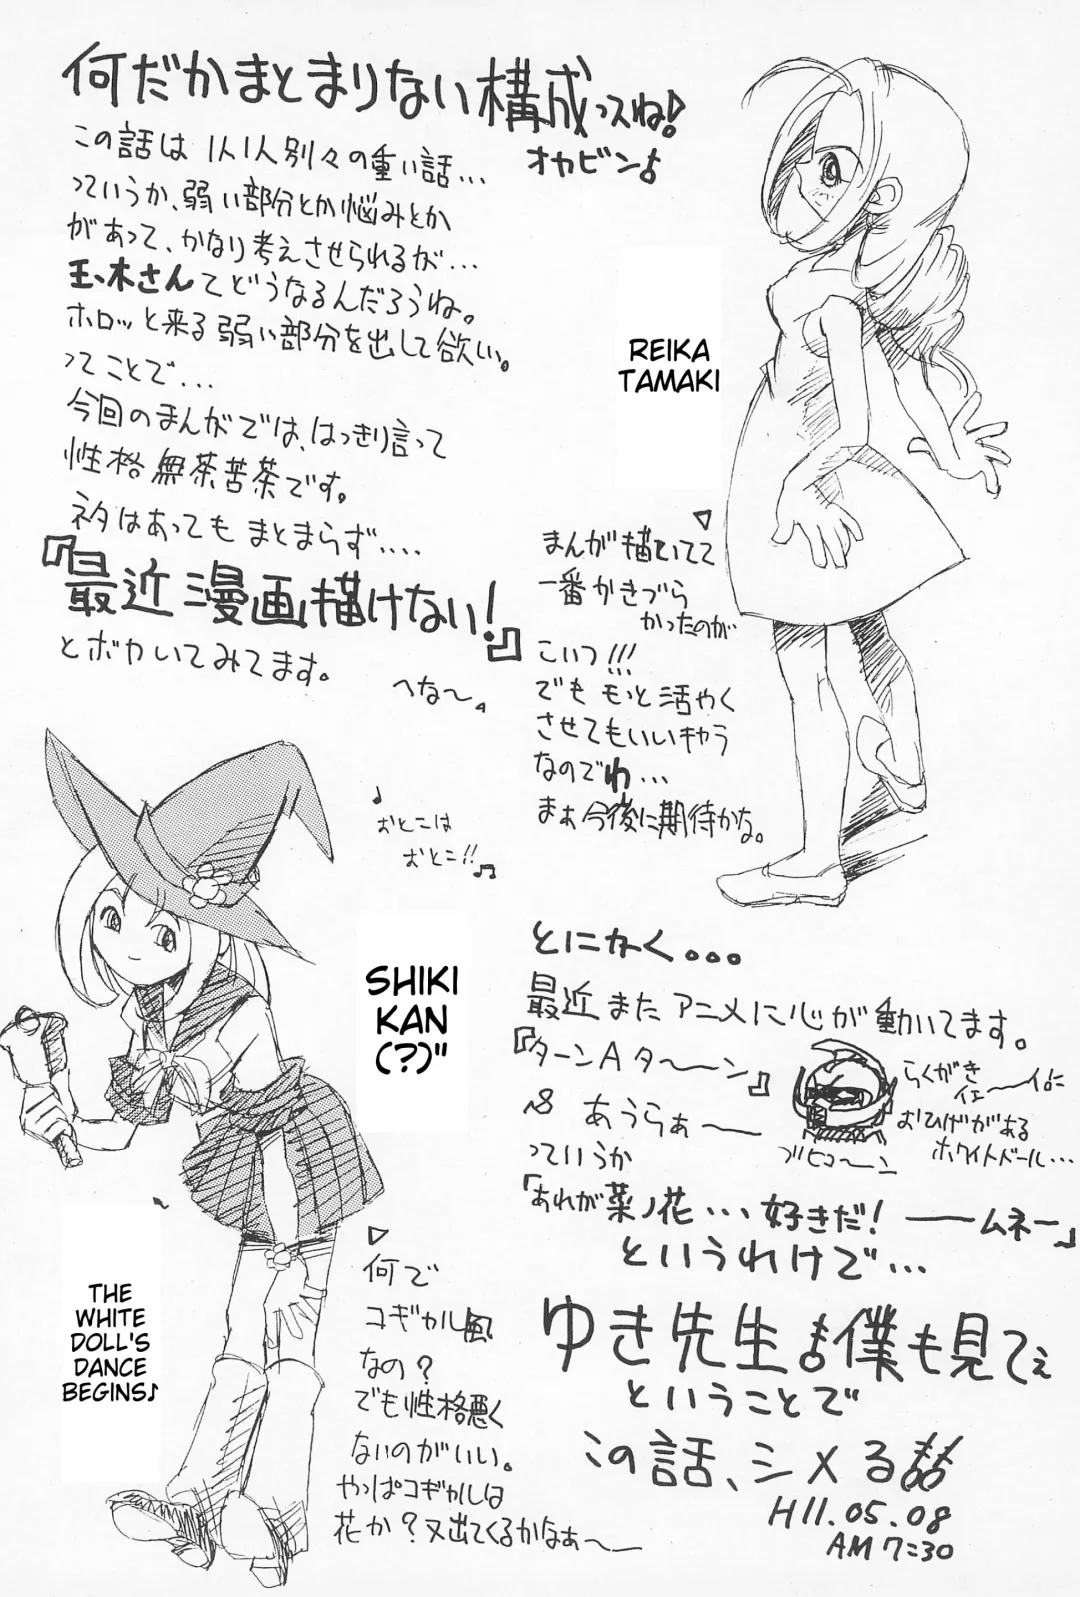 何だかまとまりない構成ってスね♪
オカビン♪
この話は1人1人別々の重い話…
っていうか、弱い部分とか悩みとか
があって、かなり考えさせられるが…
玉木さんてどうなるんだろうね。
ホロッと来る弱い部分を出して欲しい。
ってことで…
今回のまんがでは、はっきり言って
性格無茶苦茶です。
ネタはあってもまとまらず‥‥
『最近漫画描けない!』
とボカいてみてます。
へな〜。
REIKA
TAMAKI
まんが描いてて
一番かきづら
かったのが
こいつ!!!
でももっと活やく
させてもいいキャラ
なのでわ…
まぁ今後に期待かな。
♪
おとこは
おとこ!!♫
SHIKI
KAN
(?)"
THE
WHITE
DOLL'S
DANCE
BEGINS♪
何で
コギャル風
なの?
でも性格悪く
ないのがいい。
やっぱコギャルは
花か?又出てくるかなぁ〜―
とにかく。。。
最近またアニメに心が動いてます。
『ターンAタ〜ーン』
〜8 あうらぁ〜
らくがき
おひげがある
ホワイトドール…
ブヒコ〜ン
っていうか
「あれが菜ノ花…好きだ! ―ムネー」
というわけで…
ゆき先生も僕も見てぇ
ということで
この話、シメる
H11.05.08
AM 7:30